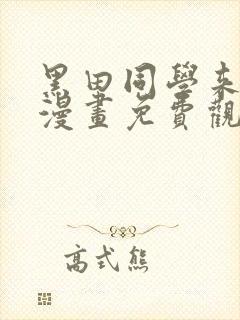 黑田同學来
漫畫免費觀
高式熊